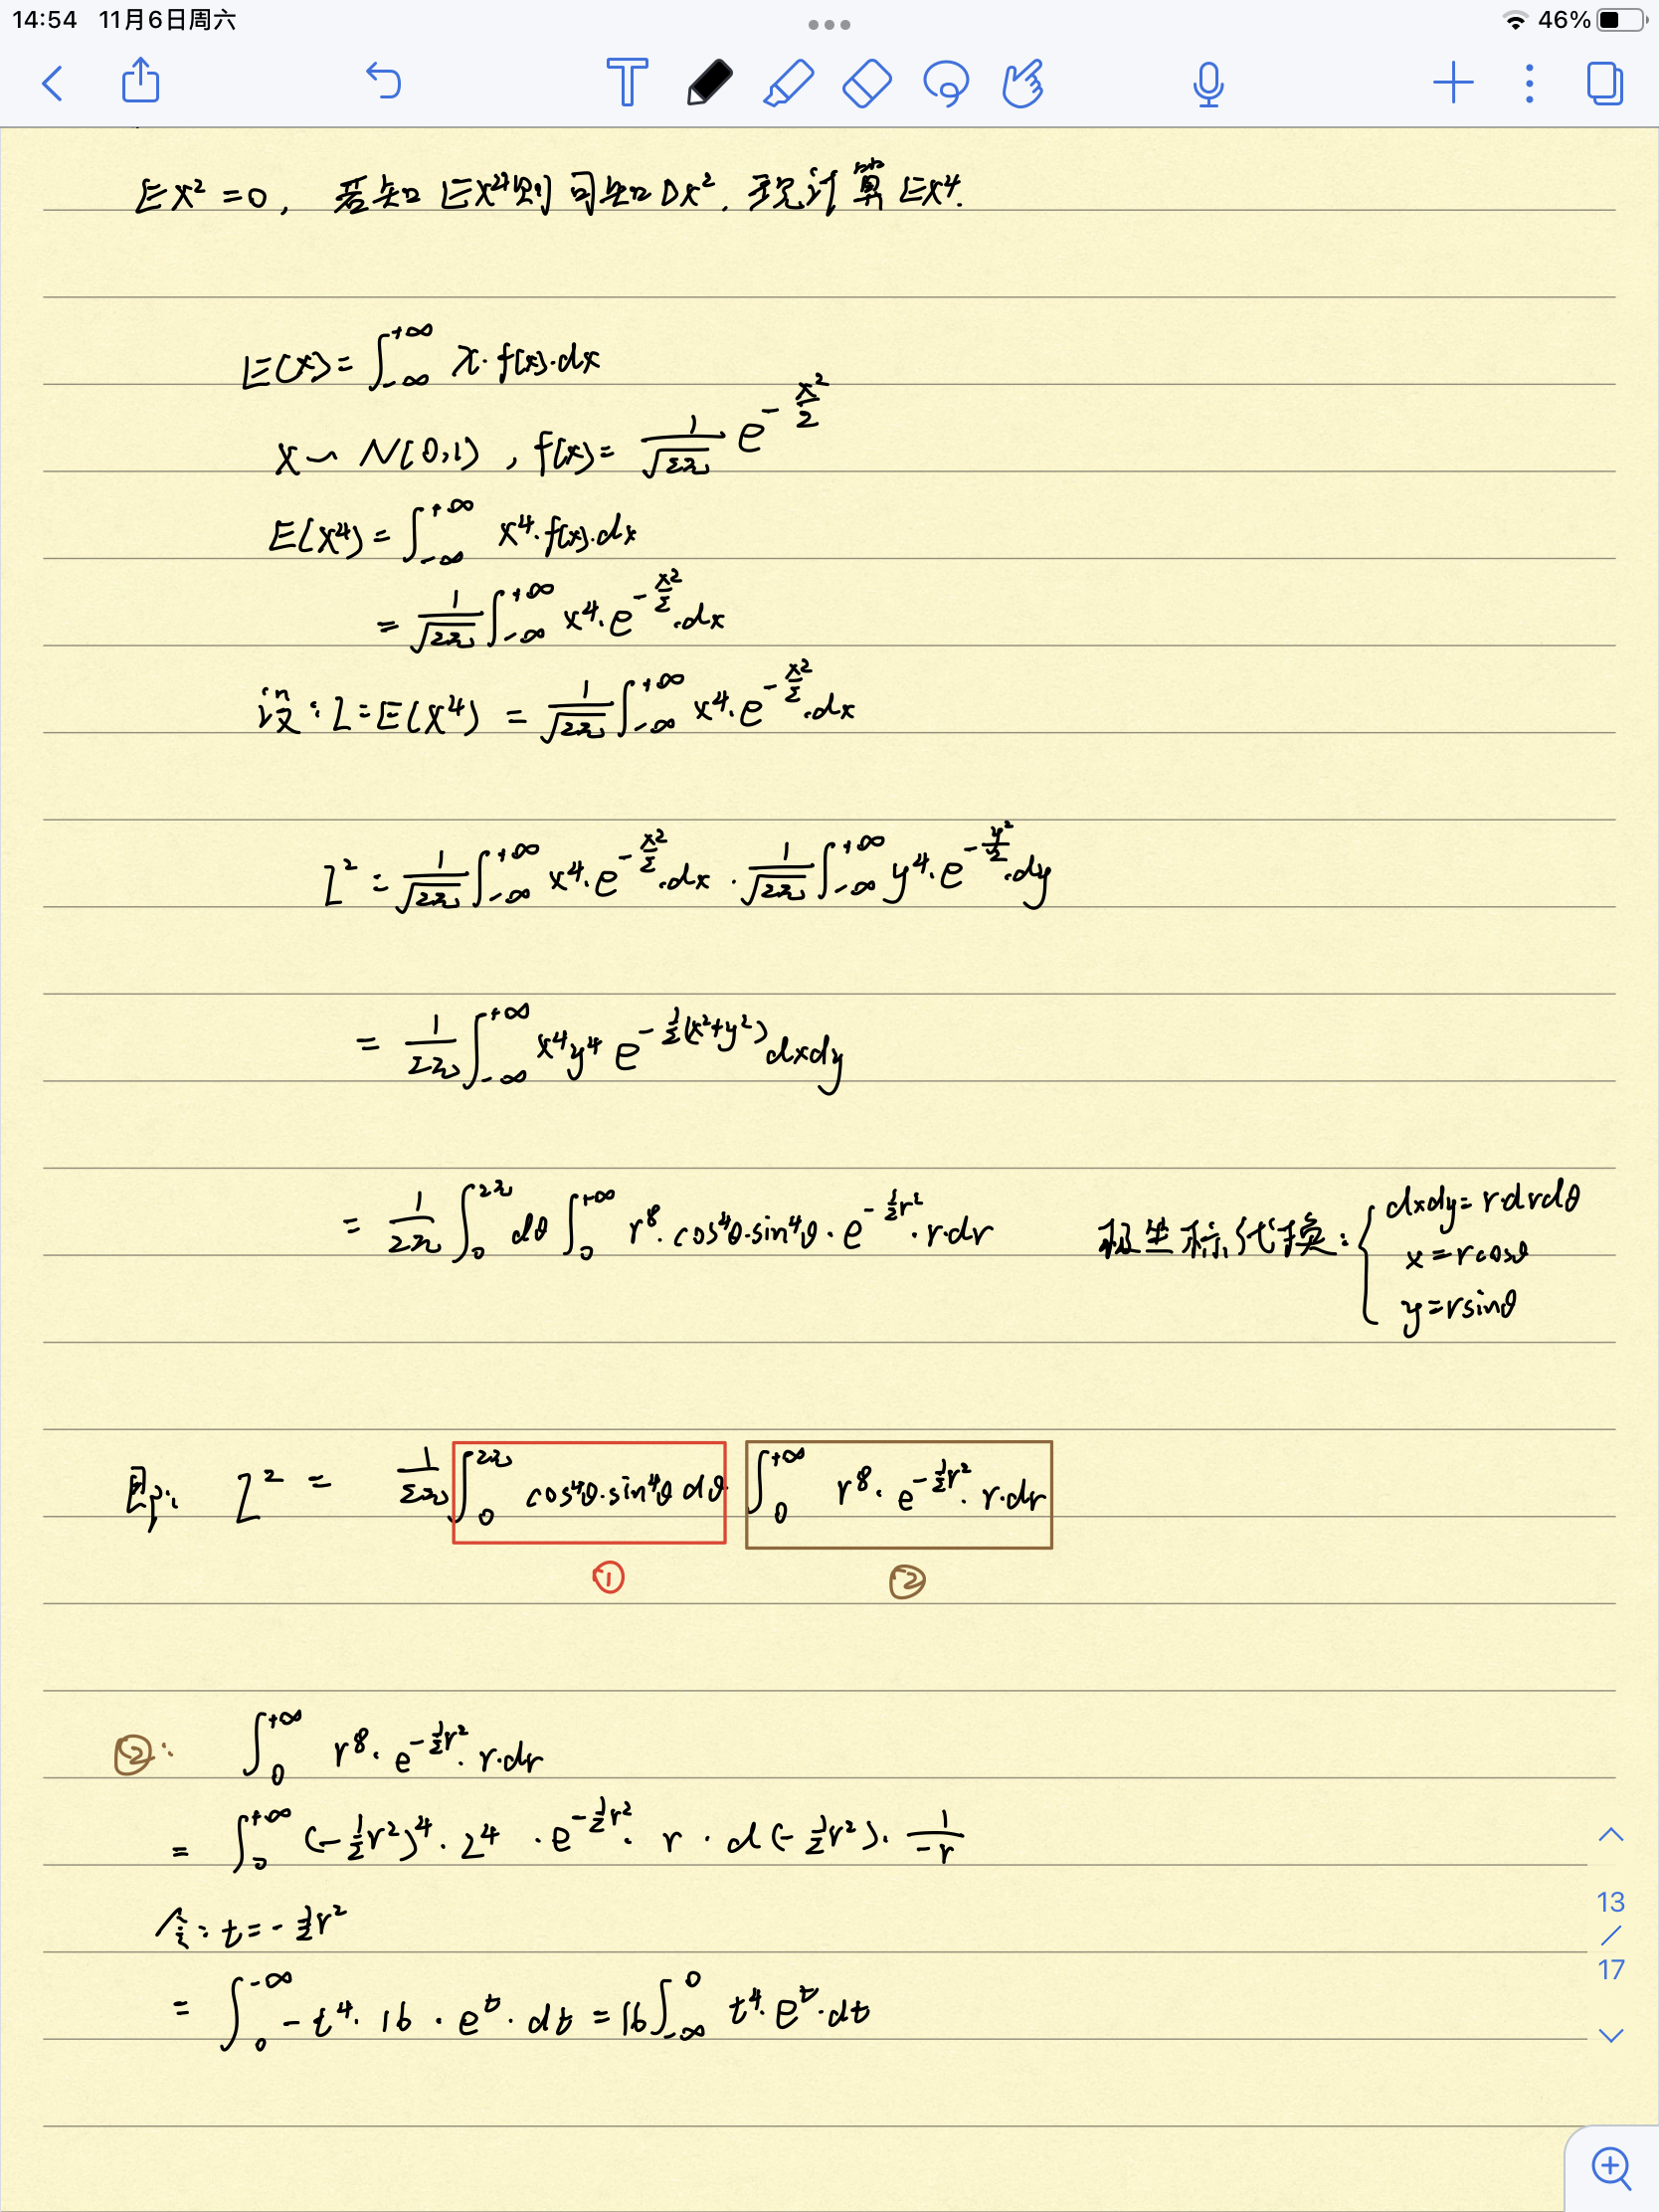 14:54 11月6日周六
46%
EX²=0, 若知EX⁴则可知DX². 现计算EX⁴.
E(X)=∫_{-∞}^{+∞} x·f(x)·dx
X~N(0,1), f(x)=1/√(2π) e^{-x²/2}
E(X⁴)=∫_{-∞}^{+∞} x⁴·f(x)·dx
=1/√(2π) ∫_{-∞}^{+∞} x⁴·e^{-x²/2}·dx
设:I=E(X⁴) =1/√(2π) ∫_{-∞}^{+∞} x⁴·e^{-x²/2}·dx
I²=1/√(2π) ∫_{-∞}^{+∞} x⁴·e^{-x²/2}·dx · 1/√(2π) ∫_{-∞}^{+∞} y⁴·e^{-y²/2}·dy
=1/2π ∫_{-∞}^{+∞} x⁴y⁴ e^{-1/2(x²+y²)} dxdy
=1/2π ∫_0^{2π} dθ ∫_0^{+∞} r⁸·cos⁴θ·sin⁴θ·e^{-1/2r²}·r·dr 极坐标代换: { dxdy=r·drdθ
x=rcosθ
y=rsinθ
即: I² = 1/2π ∫_0^{2π} cos⁴θ·sin⁴θ dθ ∫_0^{+∞} r⁸·e^{-1/2r²}·r·dr
① ②
②: ∫_0^{+∞} r⁸·e^{-1/2r²}·r·dr
= ∫_0^{+∞} (-1/2r²)⁴·2⁴·e^{-1/2r²}·r·d(-1/2r²)·1/-r
令:t=-1/2r²
= ∫_0^{-∞} -t⁴·16·e^t·dt =16∫_{-∞}^0 t⁴·e^t·dt
13
/
17